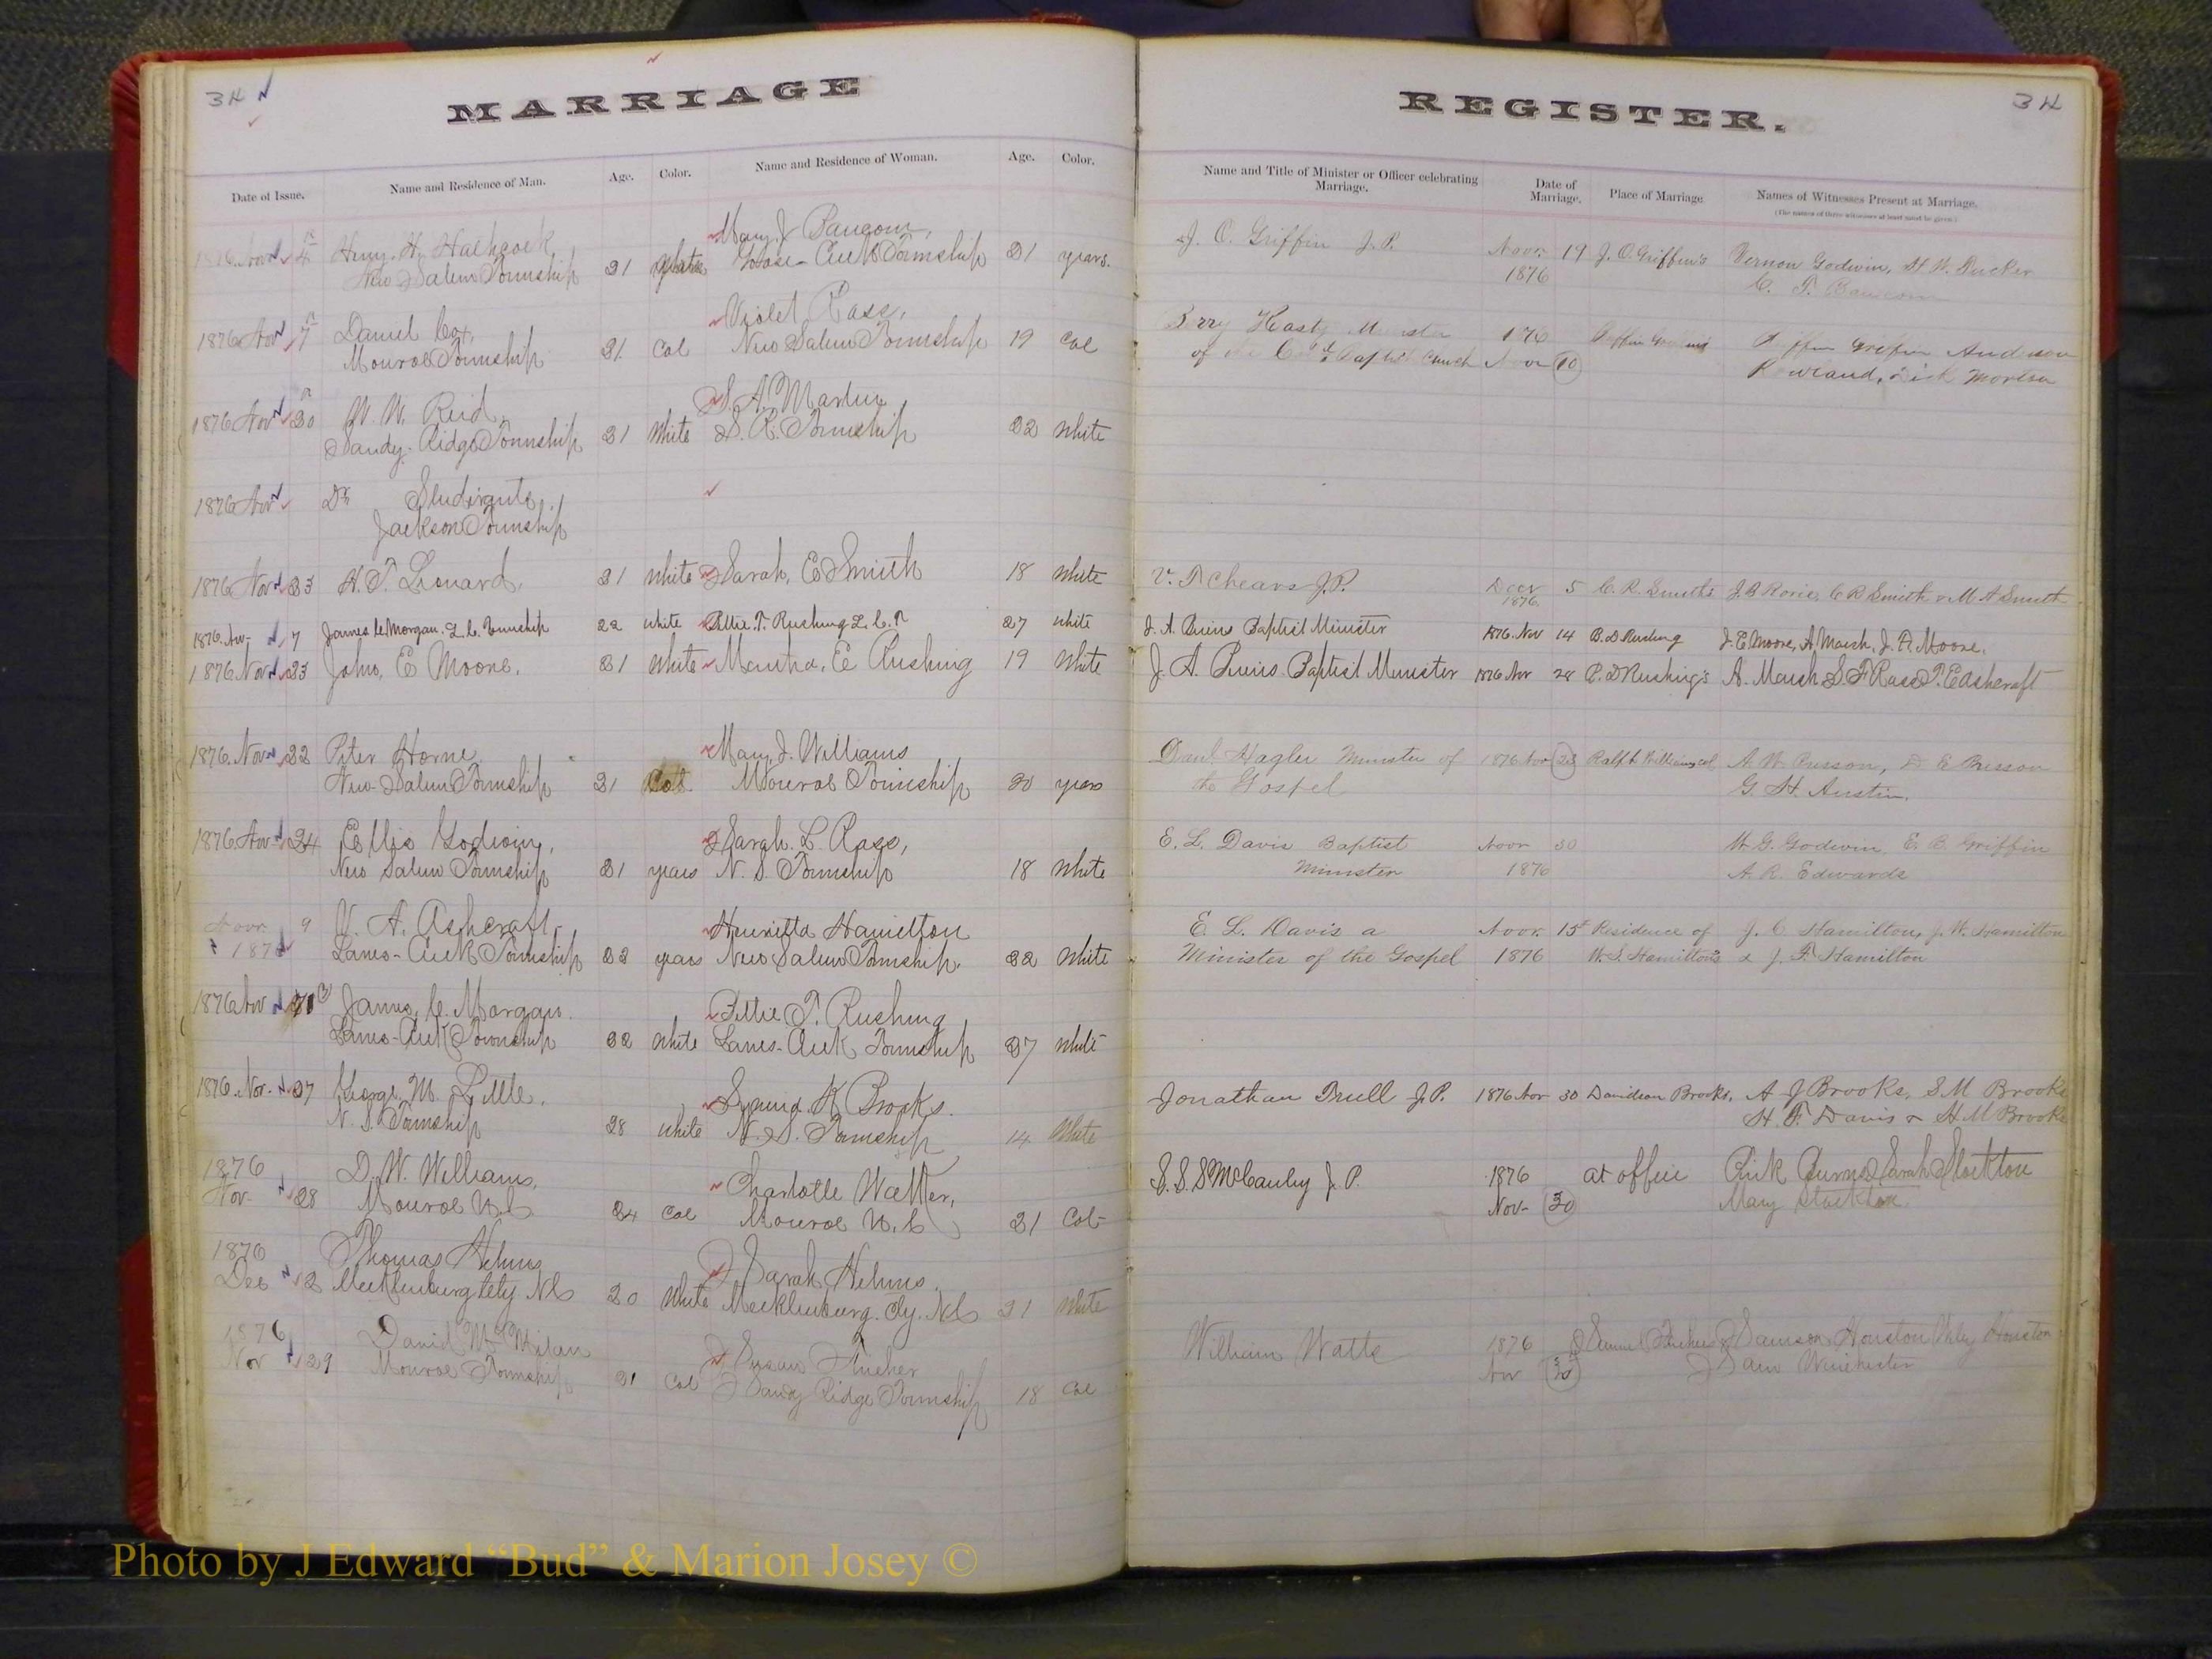 34
MARRIAGE
Date of Issue.
Name and Residence of Man.
Age.
Color.
Name and Residence of Woman.
Age.
Color.
1876 Nov 4 Henry. H. Hathcock Mary. J. Baucom,
New Salem Township 21 white Goose-Creek Township 21 years.
1876 Nov 7 Daniel Cox, Violet Rase,
Monroe Township 21 Col New Salem Township 19 Col
1876 Nov 20 W. W. Reid, S. A. Martin
Sandy Ridge Township 21 White S. R. Township 22 White
1876 Nov Dr
Jackson Township
1876 Nov 23 H. T. Leonard, 21 White Sarah, E Smith 18 White
1876. Nov- 7 James C. Morgan. L. C. Township 22 white T. Rushing L. C. T 27 white
1876 Nov 23 John, E Moore. 21 White Martha, E Rushing 19 White
1876. Nov 22 Peter Horne Mary J. Williams
New-Salem Township 21 Col Monroe Township 20 years
1876 Nov 24 Ellis Godwin, Sarah. L. Rase,
New Salem Township 21 years N. S. Township 18 White
Novr. 9 V. A. Ashcraft, Henrietta Hamilton
1876 Lanes-Creek Township 22 years New Salem Township. 22 White
1876 Nov James, C. Morgan. T. Rushing
Lanes-Creek Township 22 White Lanes-Creek Township 27 White
1876. Nov. 27 George. M. Little. K Brooks.
N. S. Township 28 white N. S. Township 14 White
1876 D. W. Williams, Charlotte Walker,
Nov- 28 Monroe N. C 24 Col Monroe N. C 21 Col-
1876 Thomas Helms Sarah Helms.
Dec 2 Mecklenburg Cty NC 20 White Mecklenburg. Cty. NC 21 White
1876 David Milan Susan Tucker
Nov 29 Monroe Township 21 Col Sandy Ridge Township 18 Col
REGISTER.
34
Name and Title of Minister or Officer celebrating Marriage.
Date of Marriage.
Place of Marriage
Names of Witnesses Present at Marriage.
(The names of three witnesses at least must be given.)
J. O. Griffin J.P. Novr. 19 J. O. Griffin's Vernon Godwin, H. W. Rucker
1876 C. T. Baucom
Berry Hasty Minister 176 Griffin
of the Baptist Church Novr 10 Dick Morton
V. T Chears J.P. Decr 5 C. R. Smiths J. B Rorie, C R Smith & M A Smith
1876.
J. A. Bivins Baptist Minister 1876. Nov 14 B. D Rushing J. E. Moore, A. Marsh, J. A. Moore.
J. A. Bivins Baptist Minister 1876 Nov 28 B. D Rushing's A. Marsh S. F Rase T. E Ashcraft
Danl. Hagler Minister of 1876 Nov 23 Ralph Williams A. W. Presson, D E Presson
the Gospel G. H. Austin.
E. L. Davis Baptist Novr 30 W. G. Godwin, E. B. Griffin
Minister 1876 A. R. Edwards
E. L. Davis a Novr. 15th Residence of J. C Hamilton, J. W. Hamilton
Minister of the Gospel 1876 W. S. Hamilton's & J. F. Hamilton
Jonathan Trull J.P. 1876 Nov 30 Davidson Brooks, A J Brooks, S M Brooks
H. F. Davis & H. M Brooks
S. S. S McCauley J. P. 1876 at office Sarah Stockton
Nov- 30 Mary Stockton
William Watts 1876 Samson Houston Houston
Nov 30 Sam Winchester
Photo by J Edward “Bud” & Marion Josey ©